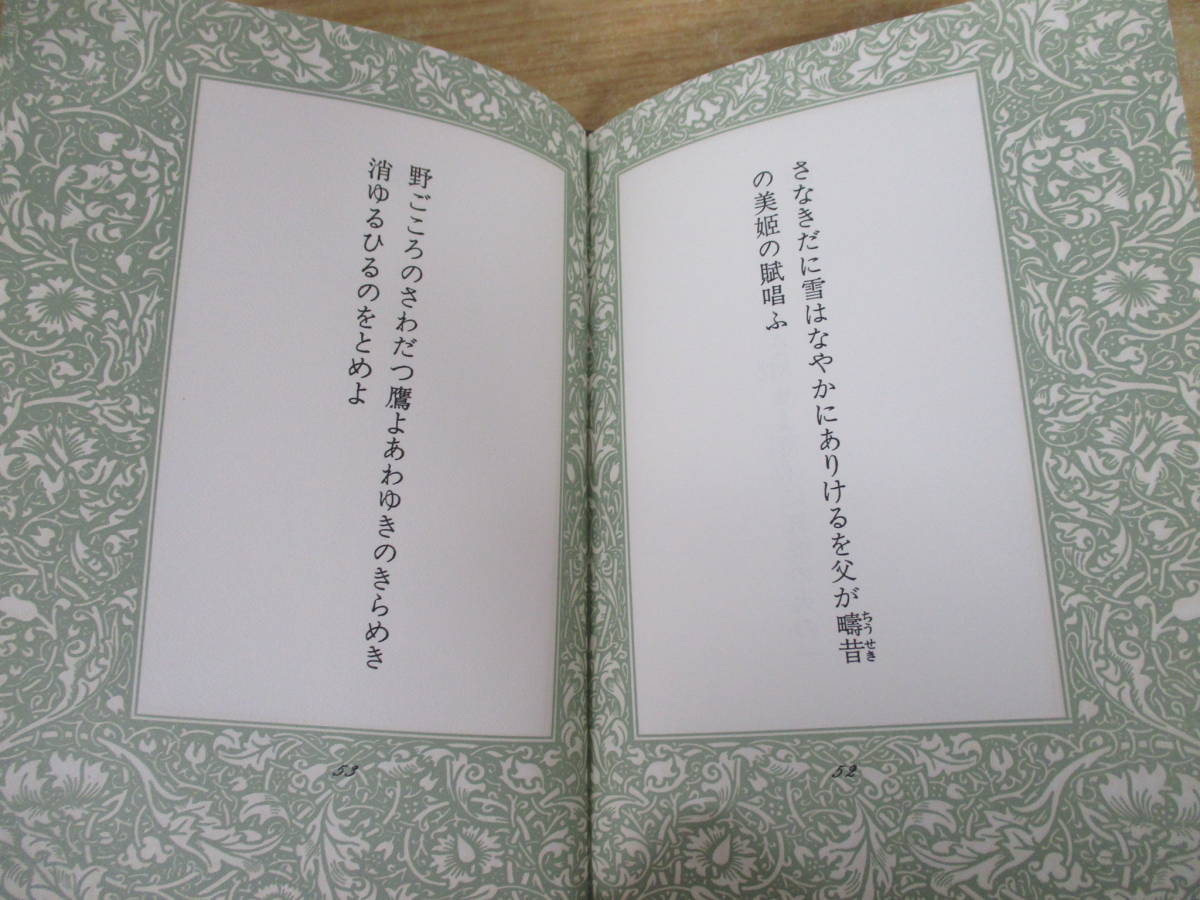 さなきだに雪はなやかにありけるを父が疇昔
ちうせき
の美姫の賦唱ふ
52
野ごころのさわだつ鷹よあわゆきのきらめき
消ゆるひるのをとめよ
53